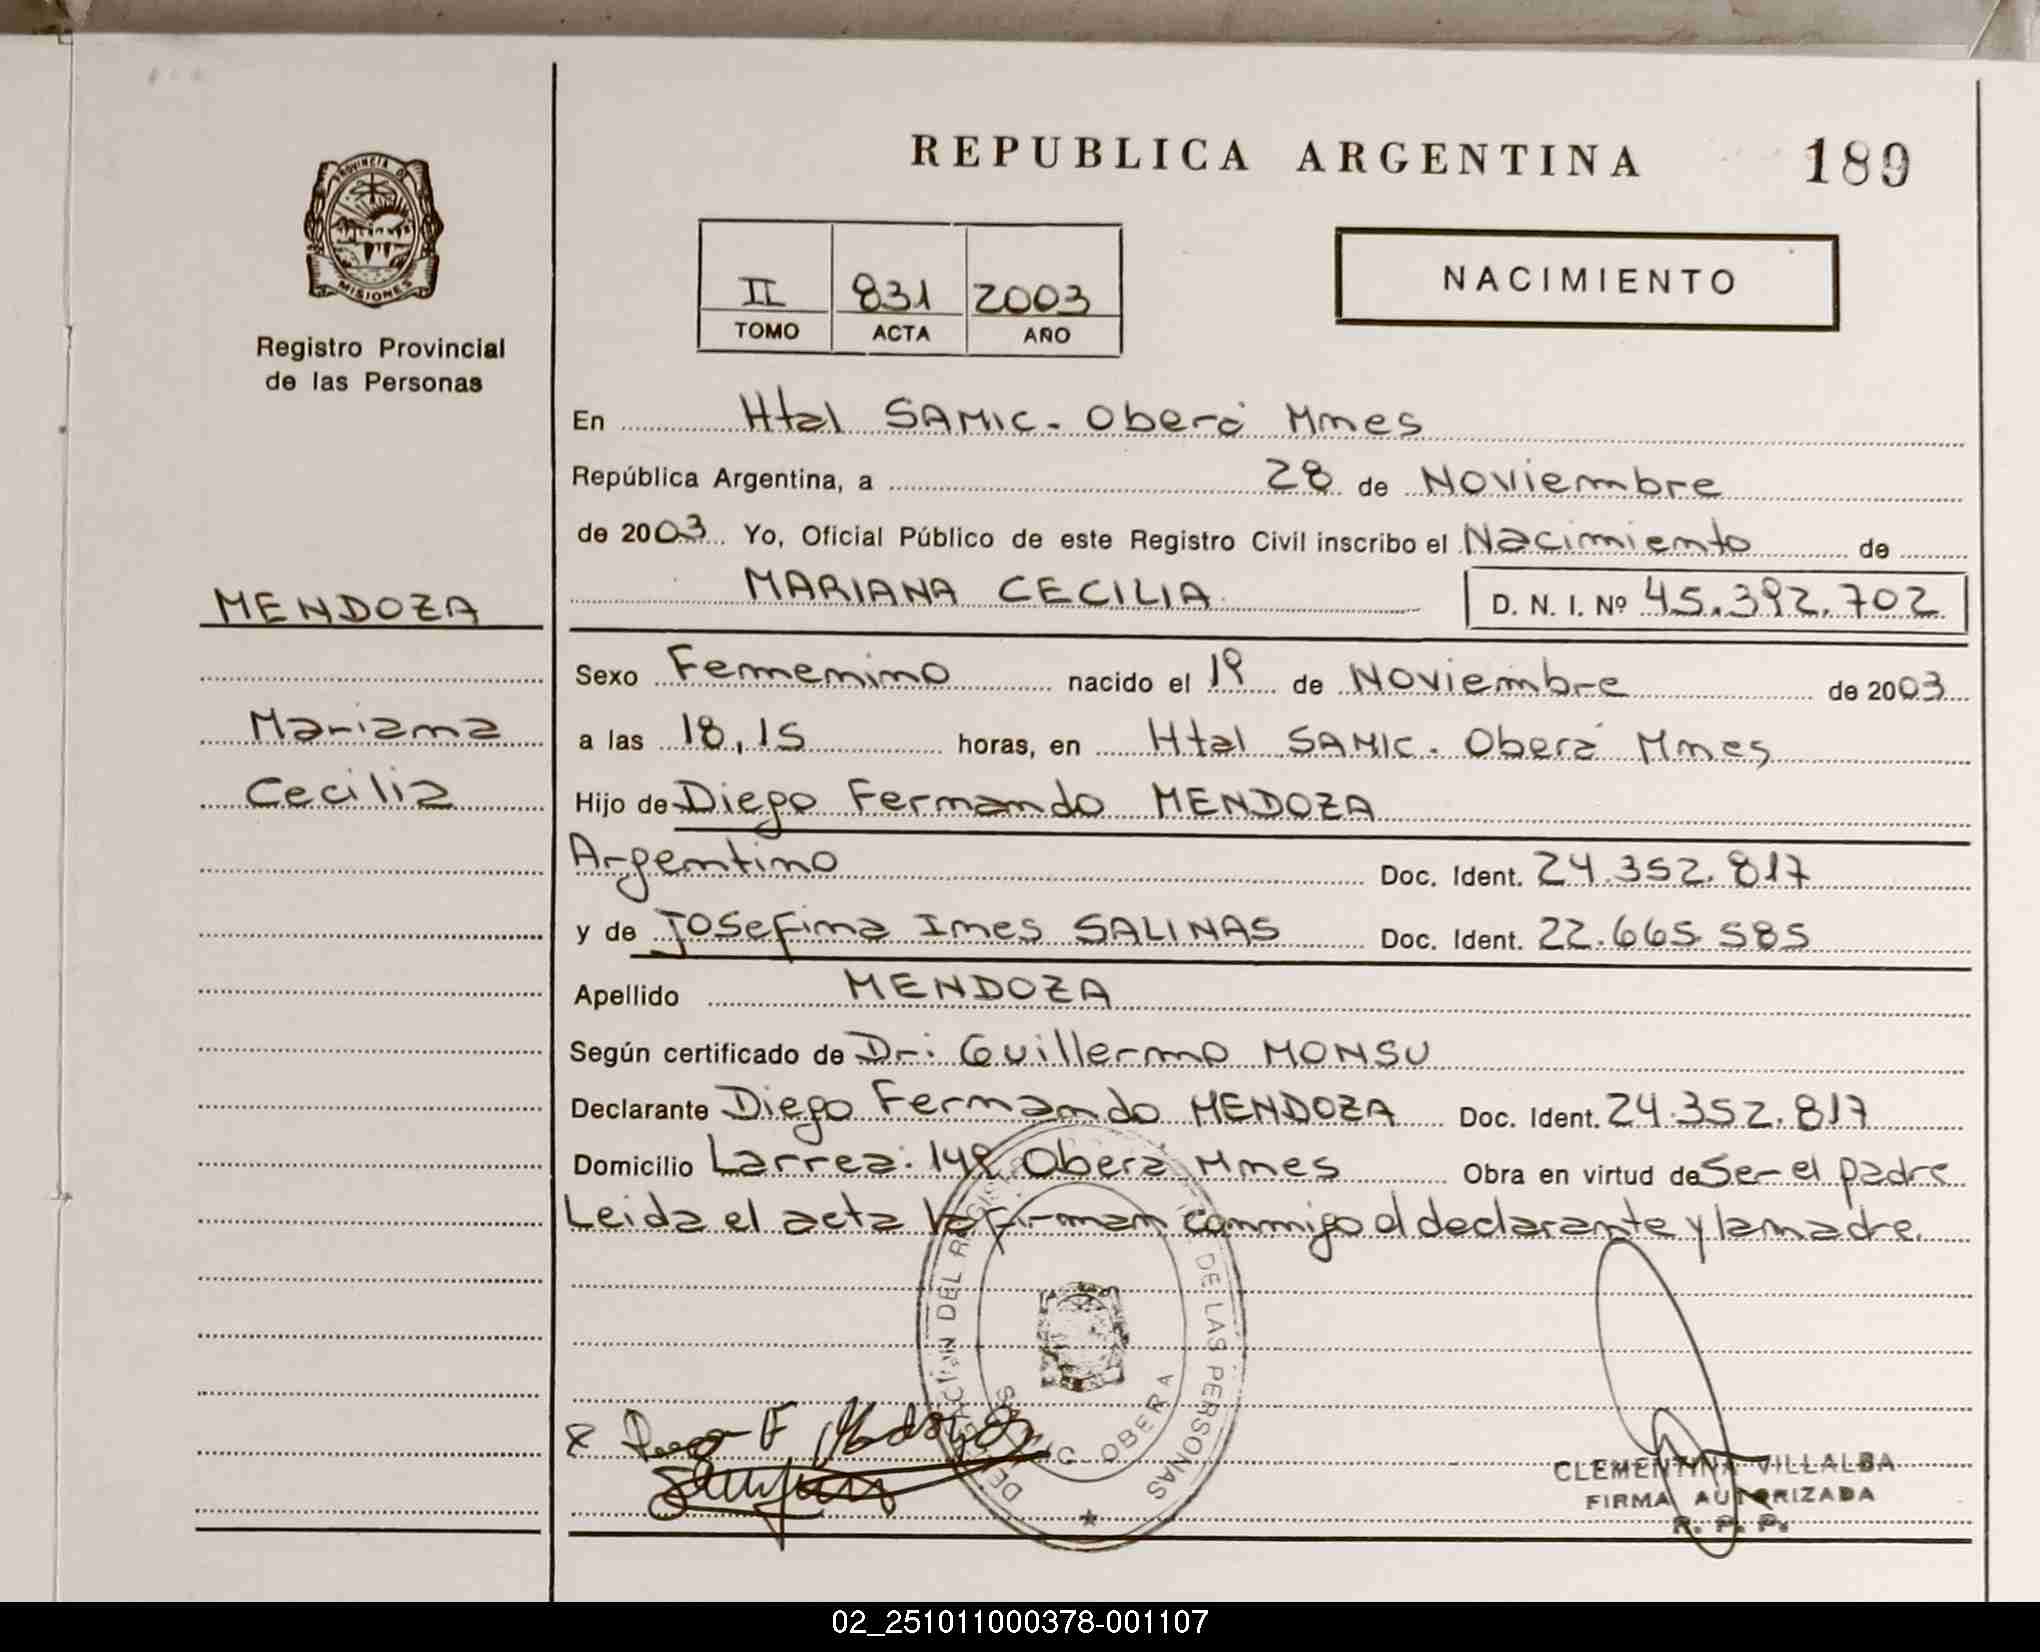 REPUBLICA ARGENTINA 189
PROVINCIA DE
MISIONES
Registro Provincial
de las Personas
II 831 2003
TOMO ACTA AÑO
NACIMIENTO
En Htal SAMIC. Oberá Mnes
República Argentina, a 28 de Noviembre
de 2003 Yo, Oficial Público de este Registro Civil inscribo el Nacimiento de
MARIANA CECILIA D. N. I. Nº 45.392.702
MENDOZA
Mariana
Cecilia
Sexo Femenino nacido el 19 de Noviembre de 2003
a las 18,15 horas, en Htal SAMIC. Oberá Mnes
Hijo de Diego Fernando MENDOZA
Argentino Doc. Ident. 24.352.817
y de Josefina Ines SALINAS Doc. Ident. 22.665.585
Apellido MENDOZA
Según certificado de Dr: Guillermo MONSU
Declarante Diego Fernando MENDOZA Doc. Ident. 24.352.817
Domicilio Larrea. Obera Mnes Obra en virtud de Ser el padre
Leida el acta la firman conmigo el declarante y la madre.
DEL DE LAS PERSONAS
OBERA
CLEMENTINA VILLALBA
FIRMA AUTORIZADA
R. P. P.
02_251011000378-001107